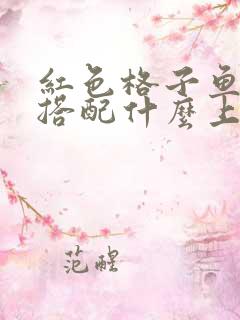 紅色格子魚
搭配什麼上
范醒